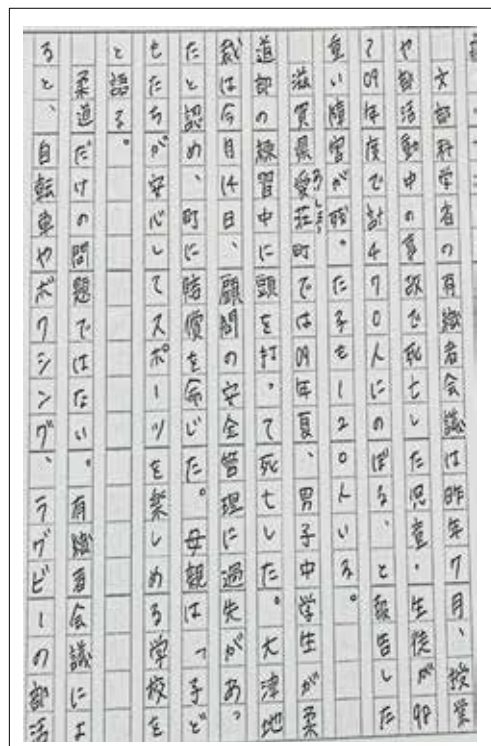 文部科学省の有識者会議は昨年7月、授業
や部活動中の事故で死亡した児童・生徒が98
〜09年度で計470人にのぼる、と報告した
重い障害が残った子も120人いる。
滋賀県愛荘町では09年夏、男子中学生が柔
道部の練習中に頭を打って死亡した。大津地
裁は今月14日、顧問の安全管理に過失があっ
たと認め、町に賠償を命じた。母親は「子ど
もたちが安心してスポーツを楽しめる学校を
と語る。
柔道だけの問題ではない。有識者会議によ
ると、自転車やボクシング、ラグビーの部活